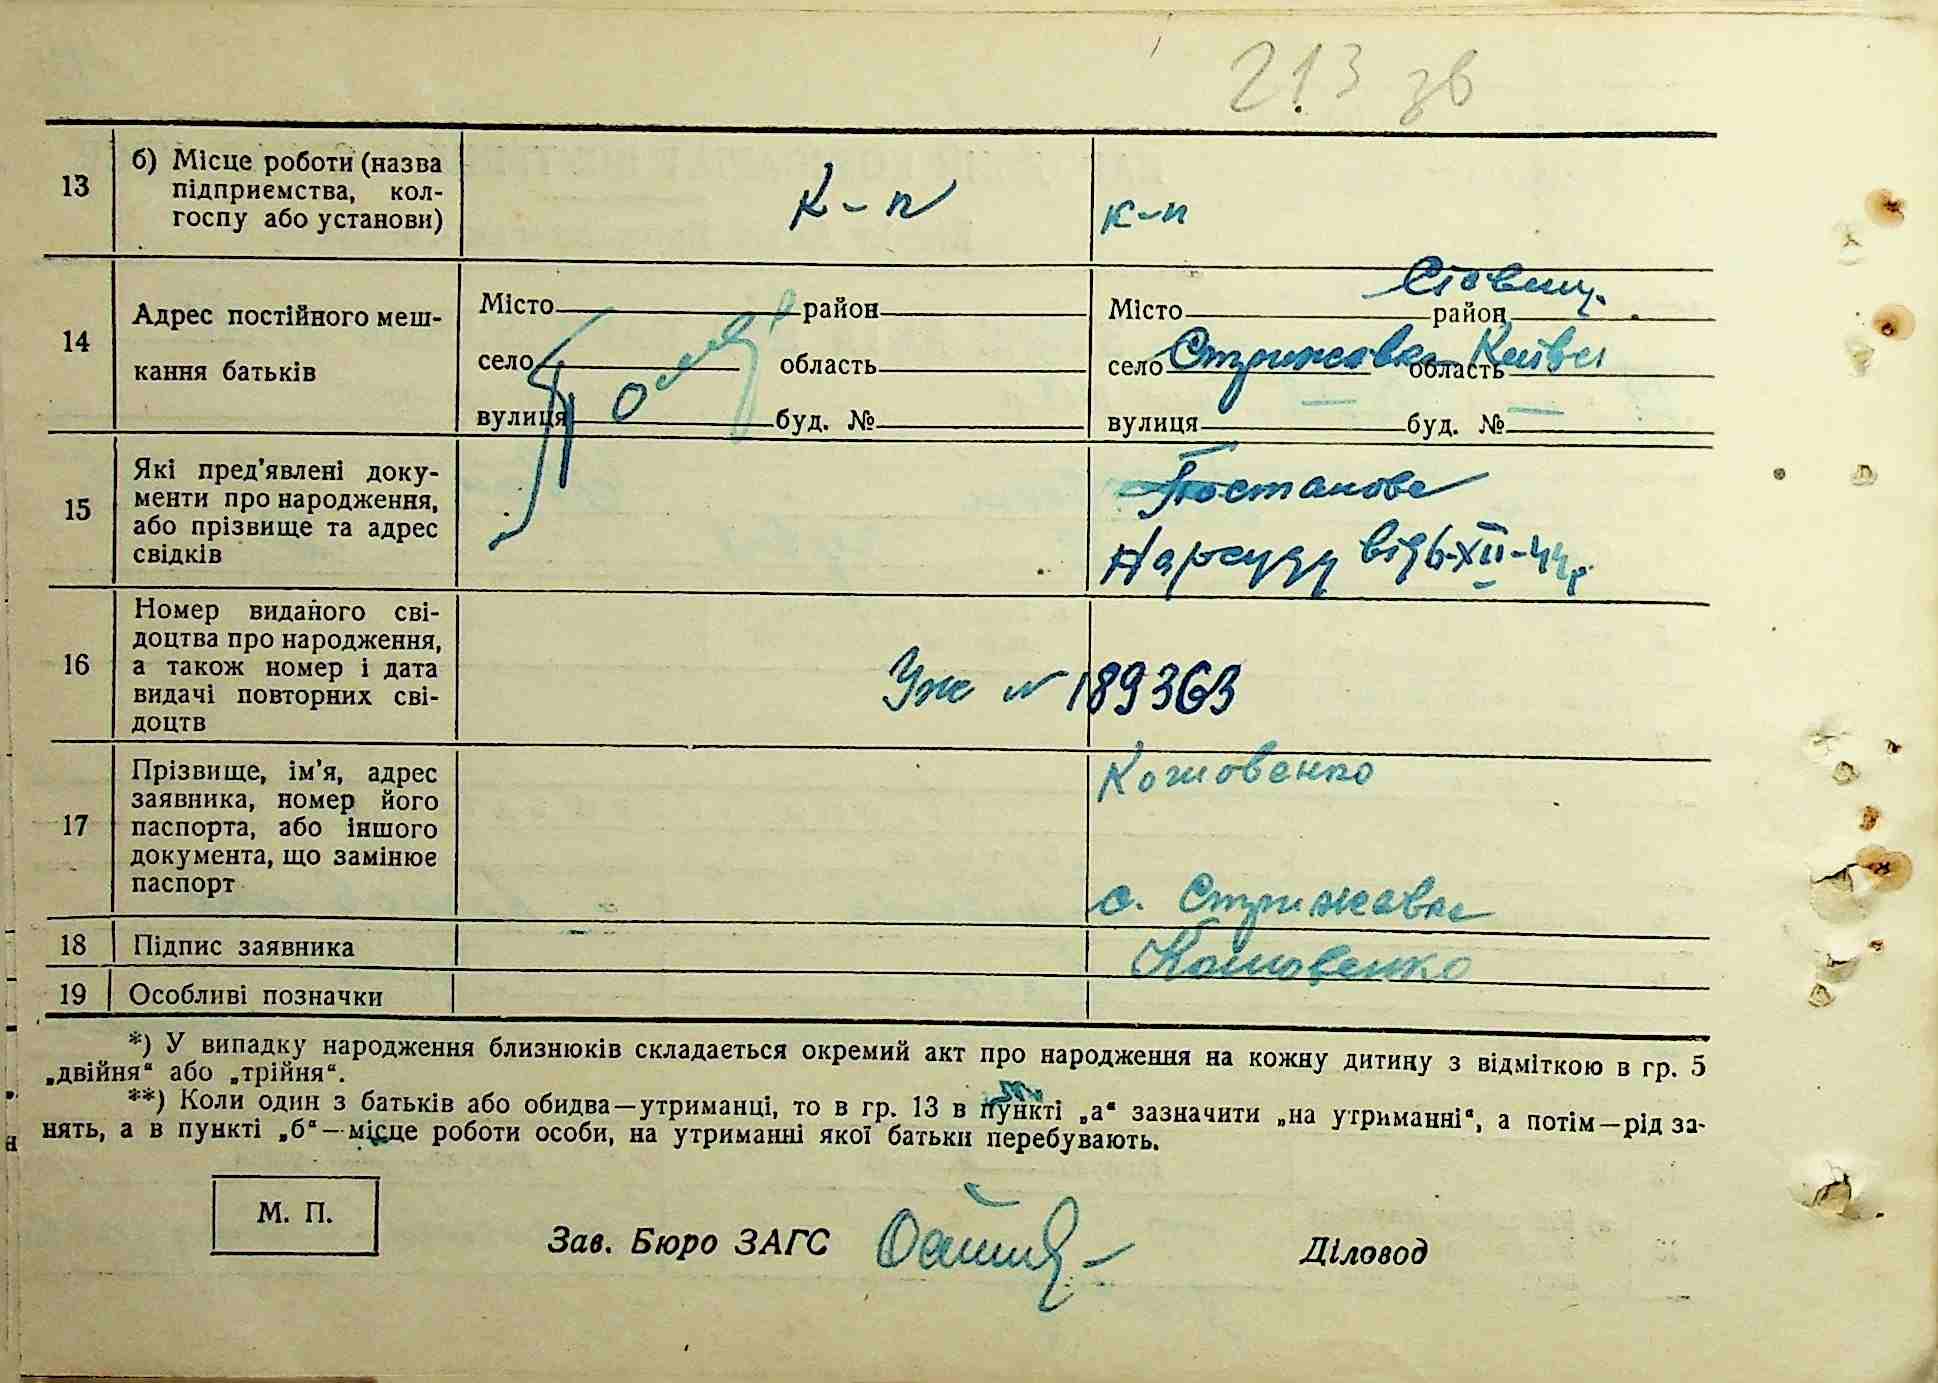 213 зв
13
б) Місце роботи (назва
підприємства, кол-
госпу або установи)
К-п
к-п
14
Адрес постійного меш-
кання батьків
Місто район
село область
вулиця буд. №
Помер
Ставищ.
Місто район
село Стрижавка Київськ область
вулиця — буд. № —
15
Які пред'явлені доку-
менти про народження,
або прізвище та адрес
свідків
Постанова
Нарсуду від 6-XII-44р.
16
Номер виданого сві-
доцтва про народження,
а також номер і дата
видачі повторних сві-
доцтв
Уж № 189363
17
Прізвище, ім'я, адрес
заявника, номер його
паспорта, або іншого
документа, що замінює
паспорт
с. Стрижавка
18 Підпис заявника
19 Особливі позначки
*) У випадку народження близнюків складається окремий акт про народження на кожну дитину з відміткою в гр. 5
„двійня“ або „трійня“.
**) Коли один з батьків або обидва—утриманці, то в гр. 13 в пункті „а“ зазначити „на утриманні“, а потім—рід за-
нять, а в пункті „б“—місце роботи особи, на утриманні якої батьки перебувають.
М. П.
Зав. Бюро ЗАГС
Діловод